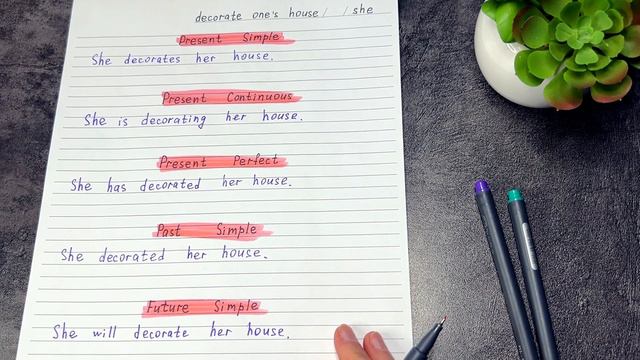 decorate one's house / / she
Present Simple
She decorates her house.
Present Continuous
She is decorating her house.
Present Perfect
She has decorated her house.
Past Simple
She decorated her house.
Future Simple
She will decorate her house.